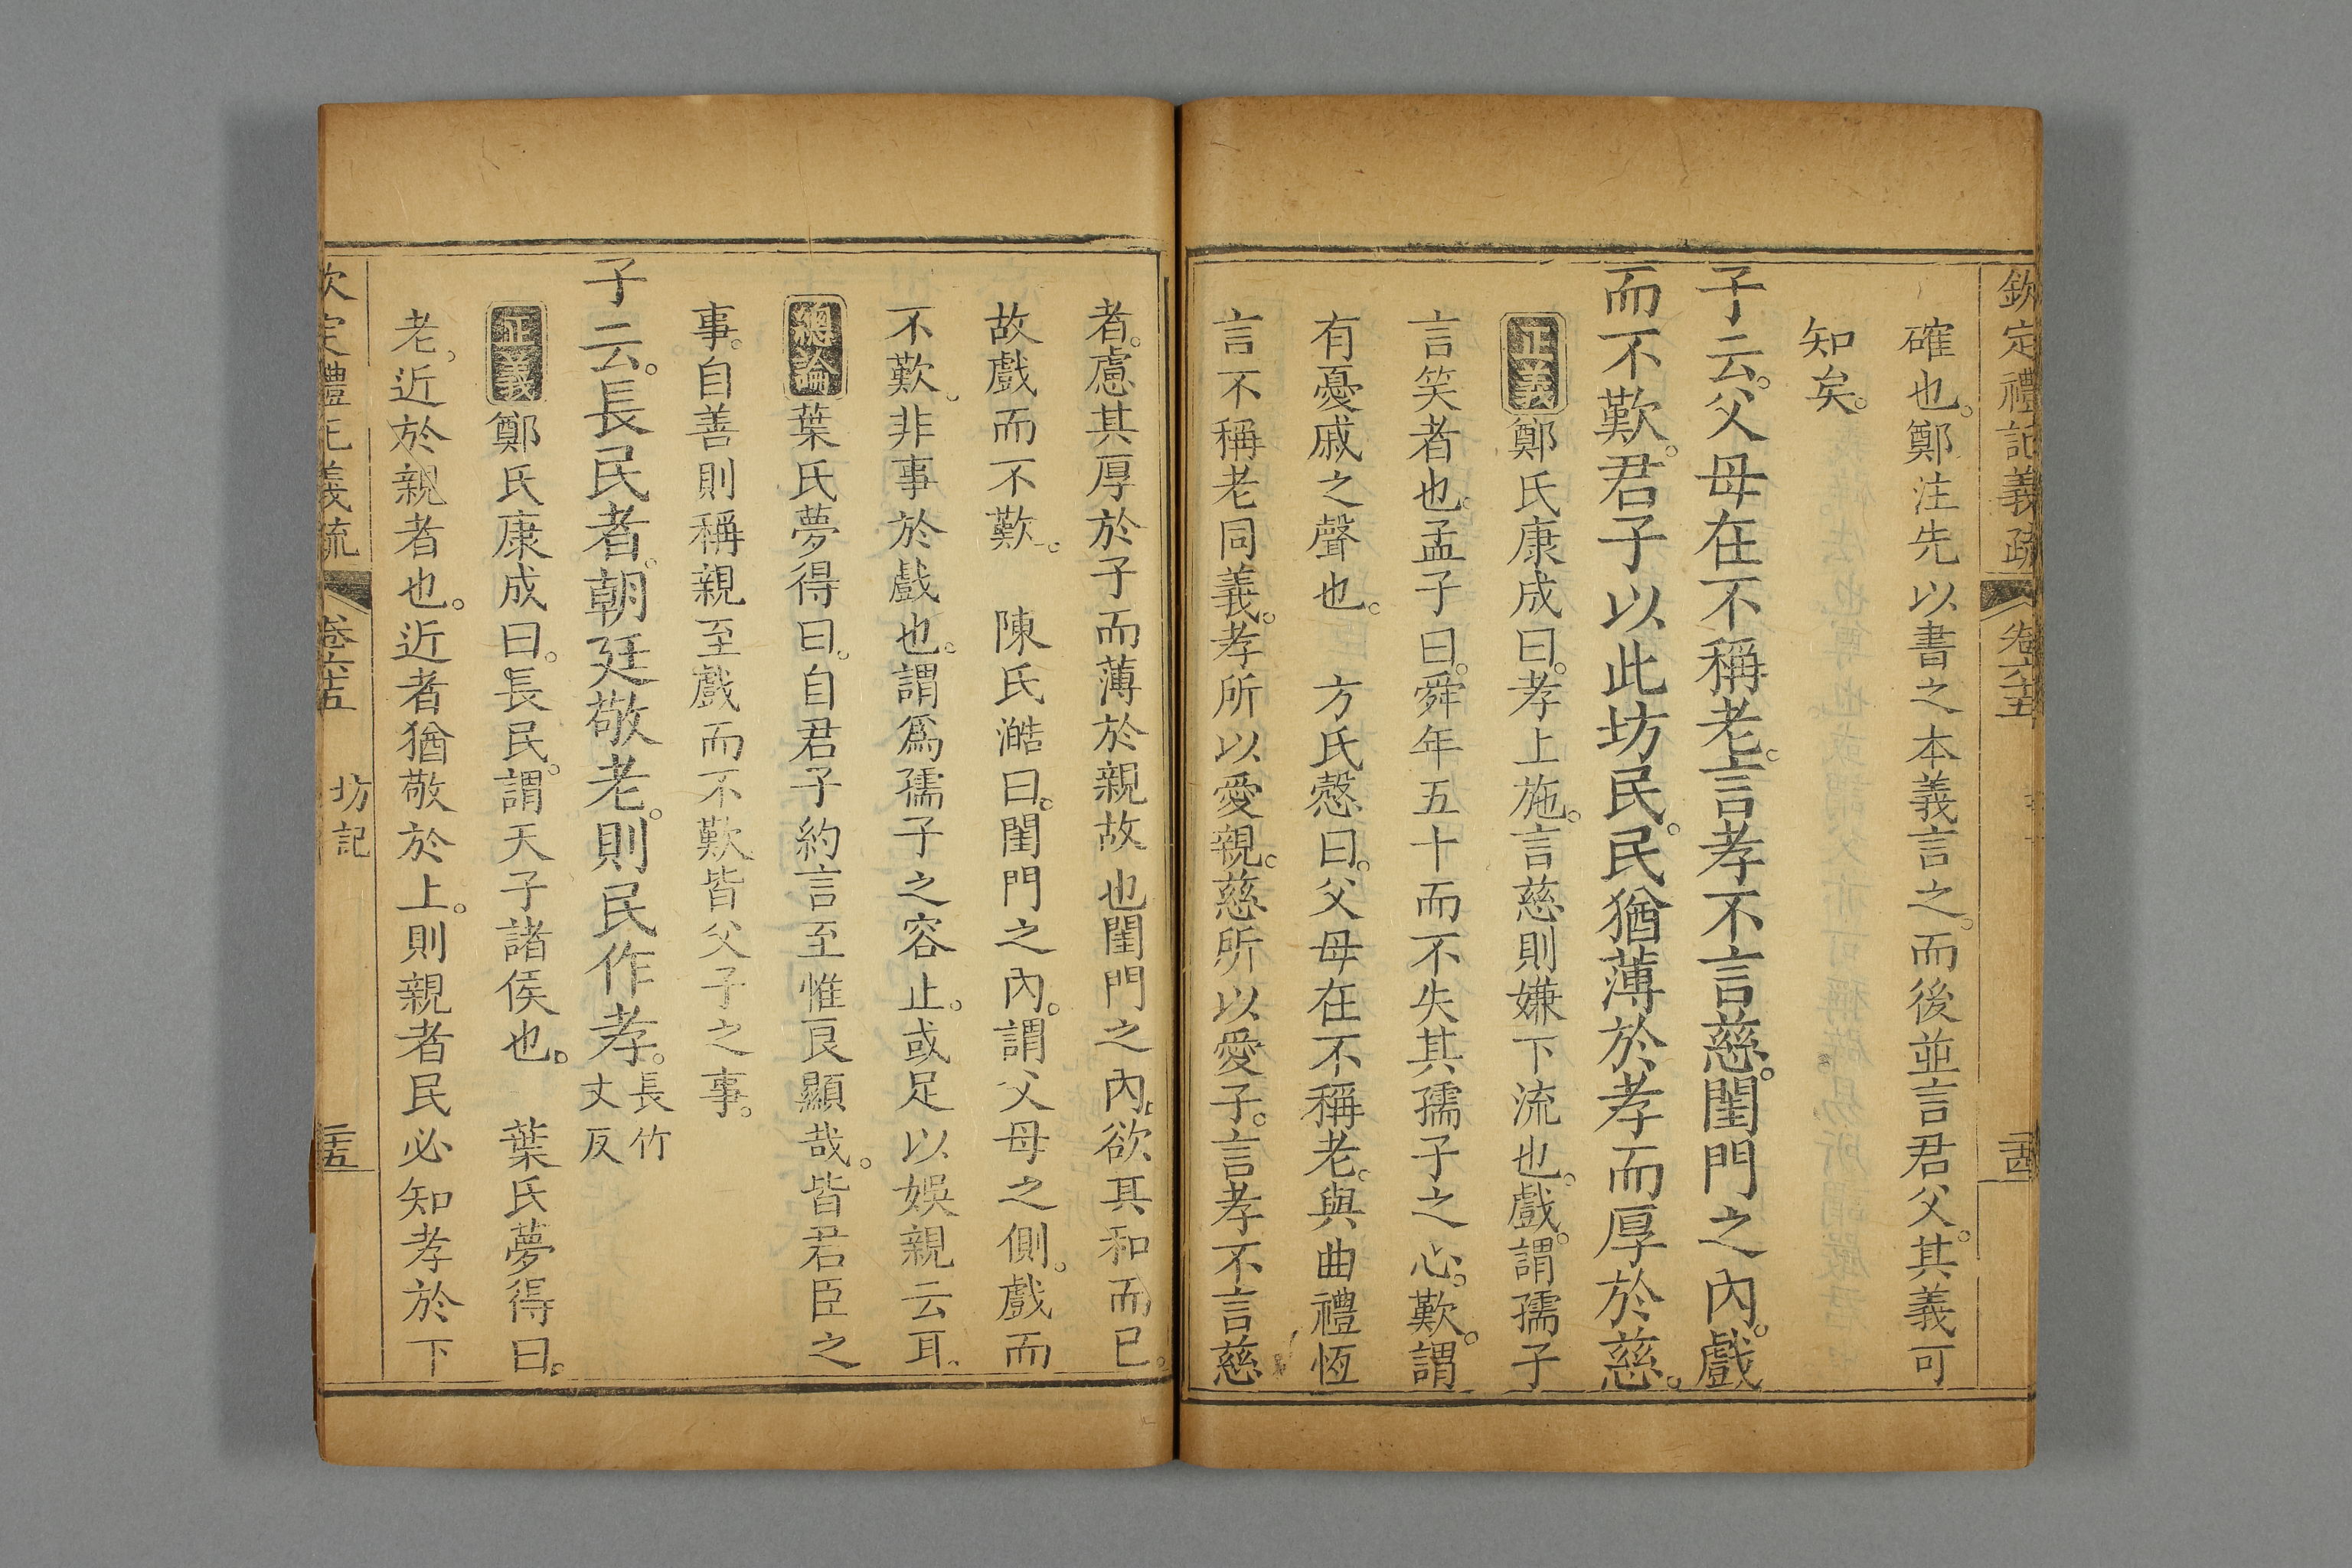 欽定禮記義疏 卷六十五 二十四
確也。鄭注先以書之本義言之。而後並言君父。其義可
知矣。
子云。父母在不稱老。言孝不言慈。閨門之內。戲
而不歎。君子以此坊民。民猶薄於孝而厚於慈。
正義 鄭氏康成曰。孝上施。言慈則嫌下流也。戲。謂孺子
言笑者也。孟子曰。舜年五十而不失其孺子之心。歎。謂
有憂戚之聲也。 方氏慤曰。父母在不稱老。與曲禮恆
言不稱老同義。孝所以愛親。慈所以愛子。言孝不言慈
者。慮其厚於子而薄於親故也閨門之內。欲其和而已。
故戲而不歎。 陳氏澔曰。閨門之內。謂父母之側。戲而
不歎。非事於戲也。謂爲孺子之容止。或足以娛親云耳。
總論 葉氏夢得曰。自君子約言至惟良顯哉。皆君臣之
事。自善則稱親至戲而不歎皆父子之事。
子云。長民者。朝廷敬老。則民作孝。長竹丈反
正義 鄭氏康成曰。長民。謂天子諸侯也。 葉氏夢得曰。
老。近於親者也。近者猶敬於上。則親者民必知孝於下
欽定禮記義疏 卷六十五 坊記 二十五